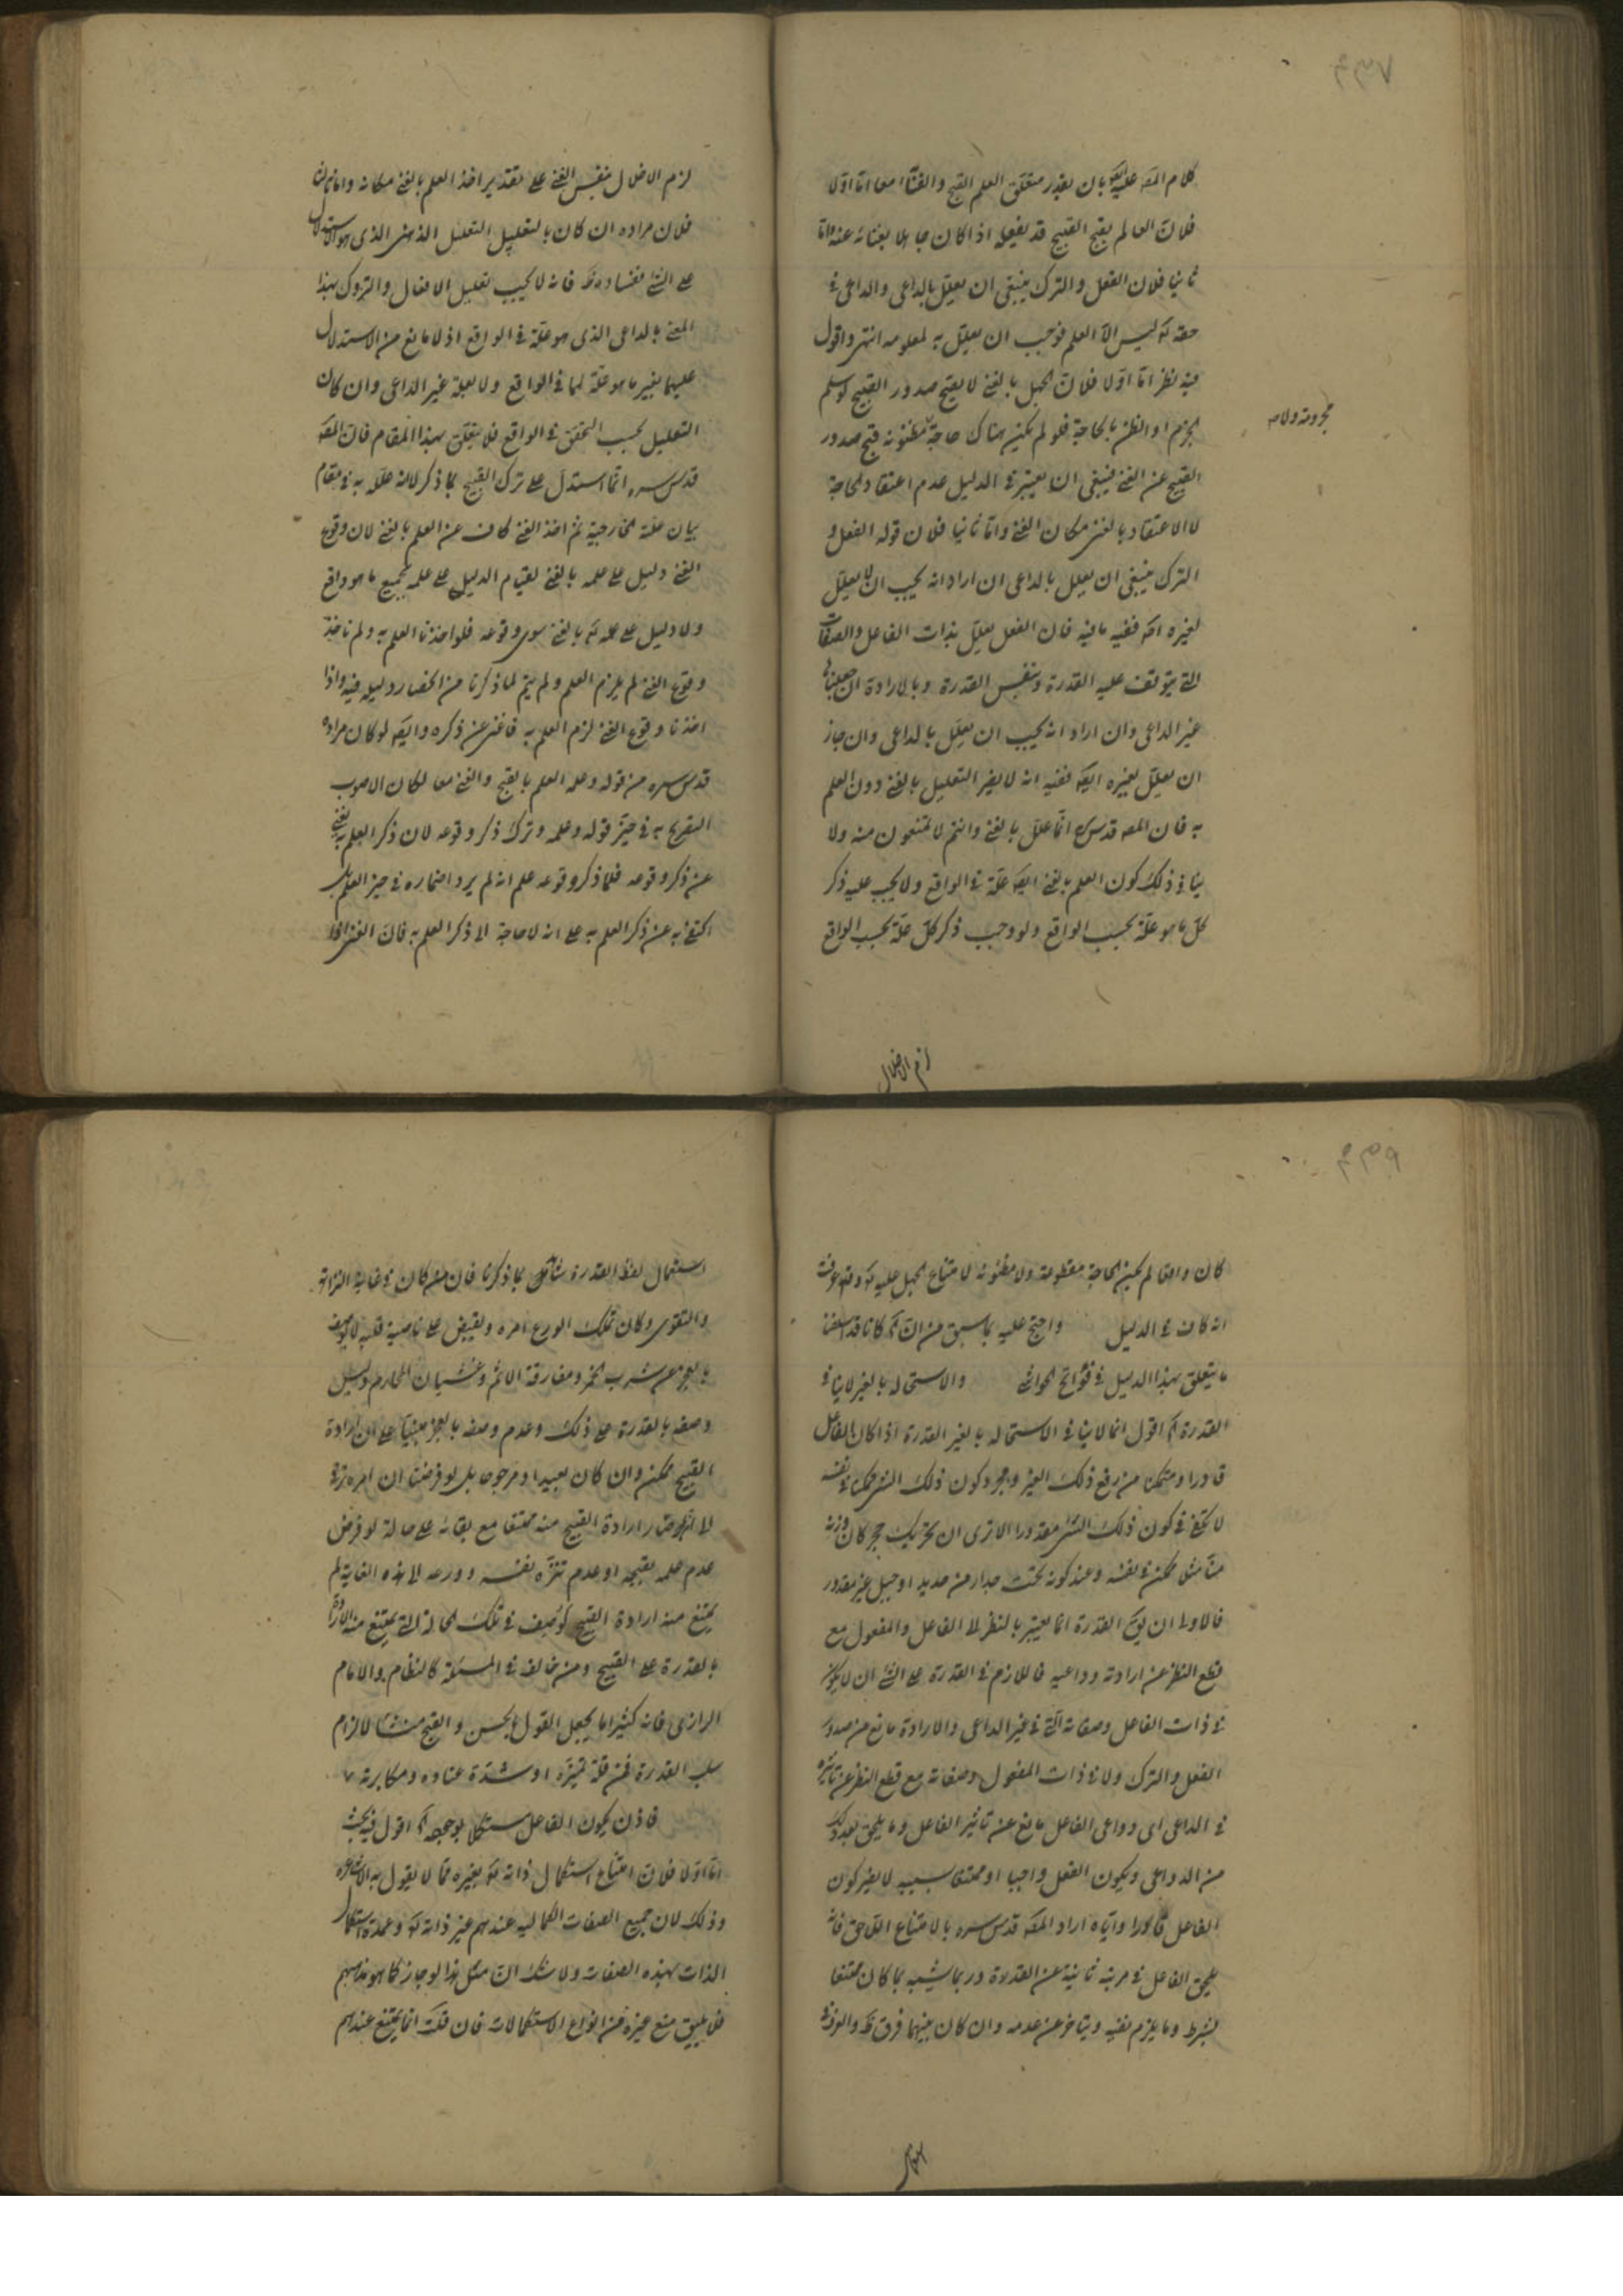 كلام المصـ عليه بان يقدر متعلق العلم القبح والغناء معا اما اولا
فلان العالم بقبح القبيح قد يفعله اذا كان جاهلا بغنائه عنه واما
ثانيا فلان الفعل والترك ينبغى ان يعلل بالداعى والداعى فى
حقه تع ليس الا العلم فوجب ان يعلل به لمعلومه انتهى واقول
فيه نظر اما اولا فلان الجهل بالغنى لا يقبح صدور القبيح لو سلم
الجزم او الظن بالحاجة فلو لم يكن هناك حاجة مظنونه قبح صدور
مجزومة ولا صـ
القبيح عن الغنى فينبغى ان يعتبر فى الدليل عدم اعتقاد الحاجة
لا الاعتقاد بالغنى مكان الغنى واما ثانيا فلان قوله الفعل و
الترك ينبغى ان يعلل بالداعى ان اراد انه يجب ان لا يعلل
لغيره اصـ ففيه ما فيه فان الفعل يعلل بذات الفاعل والصفات
التى يتوقف عليه القدرة وبنفس القدرة وبالارادة ان جعلناها
غير الداعى وان اراد انه يجب ان يعلل بالداعى وان جاز
ان يعلل بغيره ايضـ ففيه انه لا يضر التعليل بالغنى دون العلم
به فان المصـ قدس سره انما علل بالغنى وانتم لا تمنعون منه ولا
ينافى ذلك كون العلم بالغنى ايضـ علة فى الواقع ولا يجب عليه ذكر
كل ما هو علة بحسب الواقع ولو وجب ذكر كل علة بحسب الواقع
لزم الاخلال
لزم الاخلال بنفس الغنى على تقدير اخذ العلم بالغنى مكانه واما ثالثا
فلان مراده ان كان بالتعليل التعليل الذهنى الذى هو الاستدلال
على الشئ ففساده ظ فانه لا يجب تعليل الافعال والتروك بهذا
المعنى بالداعى الذى هو علة فى الواقع اذ لا مانع من الاستدلال
عليهما بغير ما هو علة لهما فى الواقع ولا بعلة غير الداعى وان كان
التعليل بحسب التحقق فى الواقع فلا يتعلق بهذا المقام فان المصـ
قدس سره انما استدل على ترك القبيح بما ذكر لا انه علله به فى مقام
بيان علة الخارجية ثم اخذ الغنى كاف عن العلم بالغنى لان وقوع
الغنى دليل على علمه بالغنى لقيام الدليل على علمه بجميع ما هو واقع
ولا دليل على علمه تع بالغنى سوى وقوعه فلو اخذنا العلم به ولم ناخذ
وقوع الغنى لم يلزم العلم ولم يتم لما ذكرنا من انحصار دليله فيه واذا
اخذنا وقوع الغنى لزم العلم به فاغنى عن ذكره وايضـ لو كان مراده
قدس سره من قوله وعلمه العلم بالقبح والغنى معا لكان الاصوب
التصريح به فى حيز قوله وعلمه وترك ذكر وقوعه لان ذكر العلم به يغنى
عن ذكر وقوعه فلما ذكر وقوعه علم انه لم يرد اضماره فى حيز العلم بل
اكتفى به عن ذكر العلم به على انه لا حاجة الى ذكر العلم به فان الغنى اذا
كان واقعا لم يكن الحاجة مقطوعة ولا مظنونه لامتناع الجهل عليه تع وقد عرفت
انه كاف فى الدليل واحتج عليه بما سبق من ان كا ناقد اسلفنا
ما يتعلق بهذا الدليل فى فواتح الحواشى والاستحاله بالغير لا ينافى
القدرة اقول انما لا ينافى الاستحاله بالغير القدرة اذا كان الفاعل
قادرا ومتمكنا من رفع ذلك الغير ومجرد كون ذلك الشئ ممكنا فى نفسه
لا يكفى فى كون ذلك الشئ مقدورا الا ترى ان تحريك حجر كان وزنه
منا مثلا ممكن فى نفسه وعند كونه تحت جدار من حديد او جبل غير مقدور
فالاولى ان يقـ القدرة انما يعتبر بالنظر الى الفاعل والمفعول مع
قطع النظر عن ارادته ودواعيه فاللازم فى القدرة على الشئ ان لا يكون
فى ذات الفاعل وصفاته التى هى غير الداعى والارادة مانع من صدور
الفعل والترك ولا فى ذات المفعول وصفاته مع قطع النظر عن تاثيره
فى الداعى اى دواعى الفاعل مانع عن تاثير الفاعل وما يلحق بعد ذلك
من الدواعى ويكون الفعل واجبا او ممتنعا بسببه لا يضر كون
الفاعل قادرا واياه اراد المصـ قدس سره بالامتناع اللاحق فانه
يلحق الفاعل فى مرتبة ثانية عن القدرة وربما يشبه بما كان ممتنعا
بشرط وما يلزم نفيه ويتاخر عن عدمه وان كان بينهما فرق ظ والعرف فى
استعمال
استعمال لفظ القدرة شاهد بما ذكرنا فان من كان فى غاية النزاهة
والتقوى وكان تملك الورع امره ويقبض على ناصية قلبه لا يوصف
بالعجز عن شرب الخمر ومقارفة الاثم وغشيان المحارم وليس
وصفه بالقدرة على ذلك وعدم وصفه بالعجز مبنيا على ان ارادة
القبيح ممكن وان كان بعيدا ومرجوحا بل لو فرضنا ان امره ترقى
الى ان صار ارادة القبيح منه ممتنعا مع بقائه على حالة لو فرض
عدم علمه بقبحه او عدم تنزه نفسه وورعه الى هذه الغاية لم
يمتنع منه ارادة القبيح لوصف فى تلك الحالة التى يمتنع منه الارادة
بالقدرة على القبيح ومن خالف فى المسئلة كالنظام والامام
الرازى فانه كثيرا ما يجعل القول بالحسن والقبح منشأ لالزام
سلب القدرة فمن قلة تميزه او شدة عناده ومكابرته
فاذن يكون الفاعل مستكملا بوجهه اقول فيه بحث
اما اولا فلان امتناع استكمال ذاته تع بغيره مما لا يقول به الاشاعرة
وذلك لان جميع الصفات الكمالية عندهم غير ذاته تع وعمدة استكمال
الذات بهذه الصفات ولا شك ان مثل هذا لو جاز كما هو مذهبهم
فلا يليق منع غيره من انواع الاستكمالات فان قلت انما يمتنع عندهم